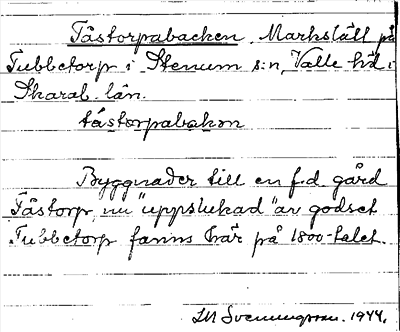 Fästorpabacken. Markställ på
Tubbetorp i Stenum s:n, Valle hd i
Skarab. län.
fástorpabakən
Byggnader till en f.d. gård
Fästorp, nu "uppslukad" av godset
Tubbetorp fanns här på 1800-talet.
1944.